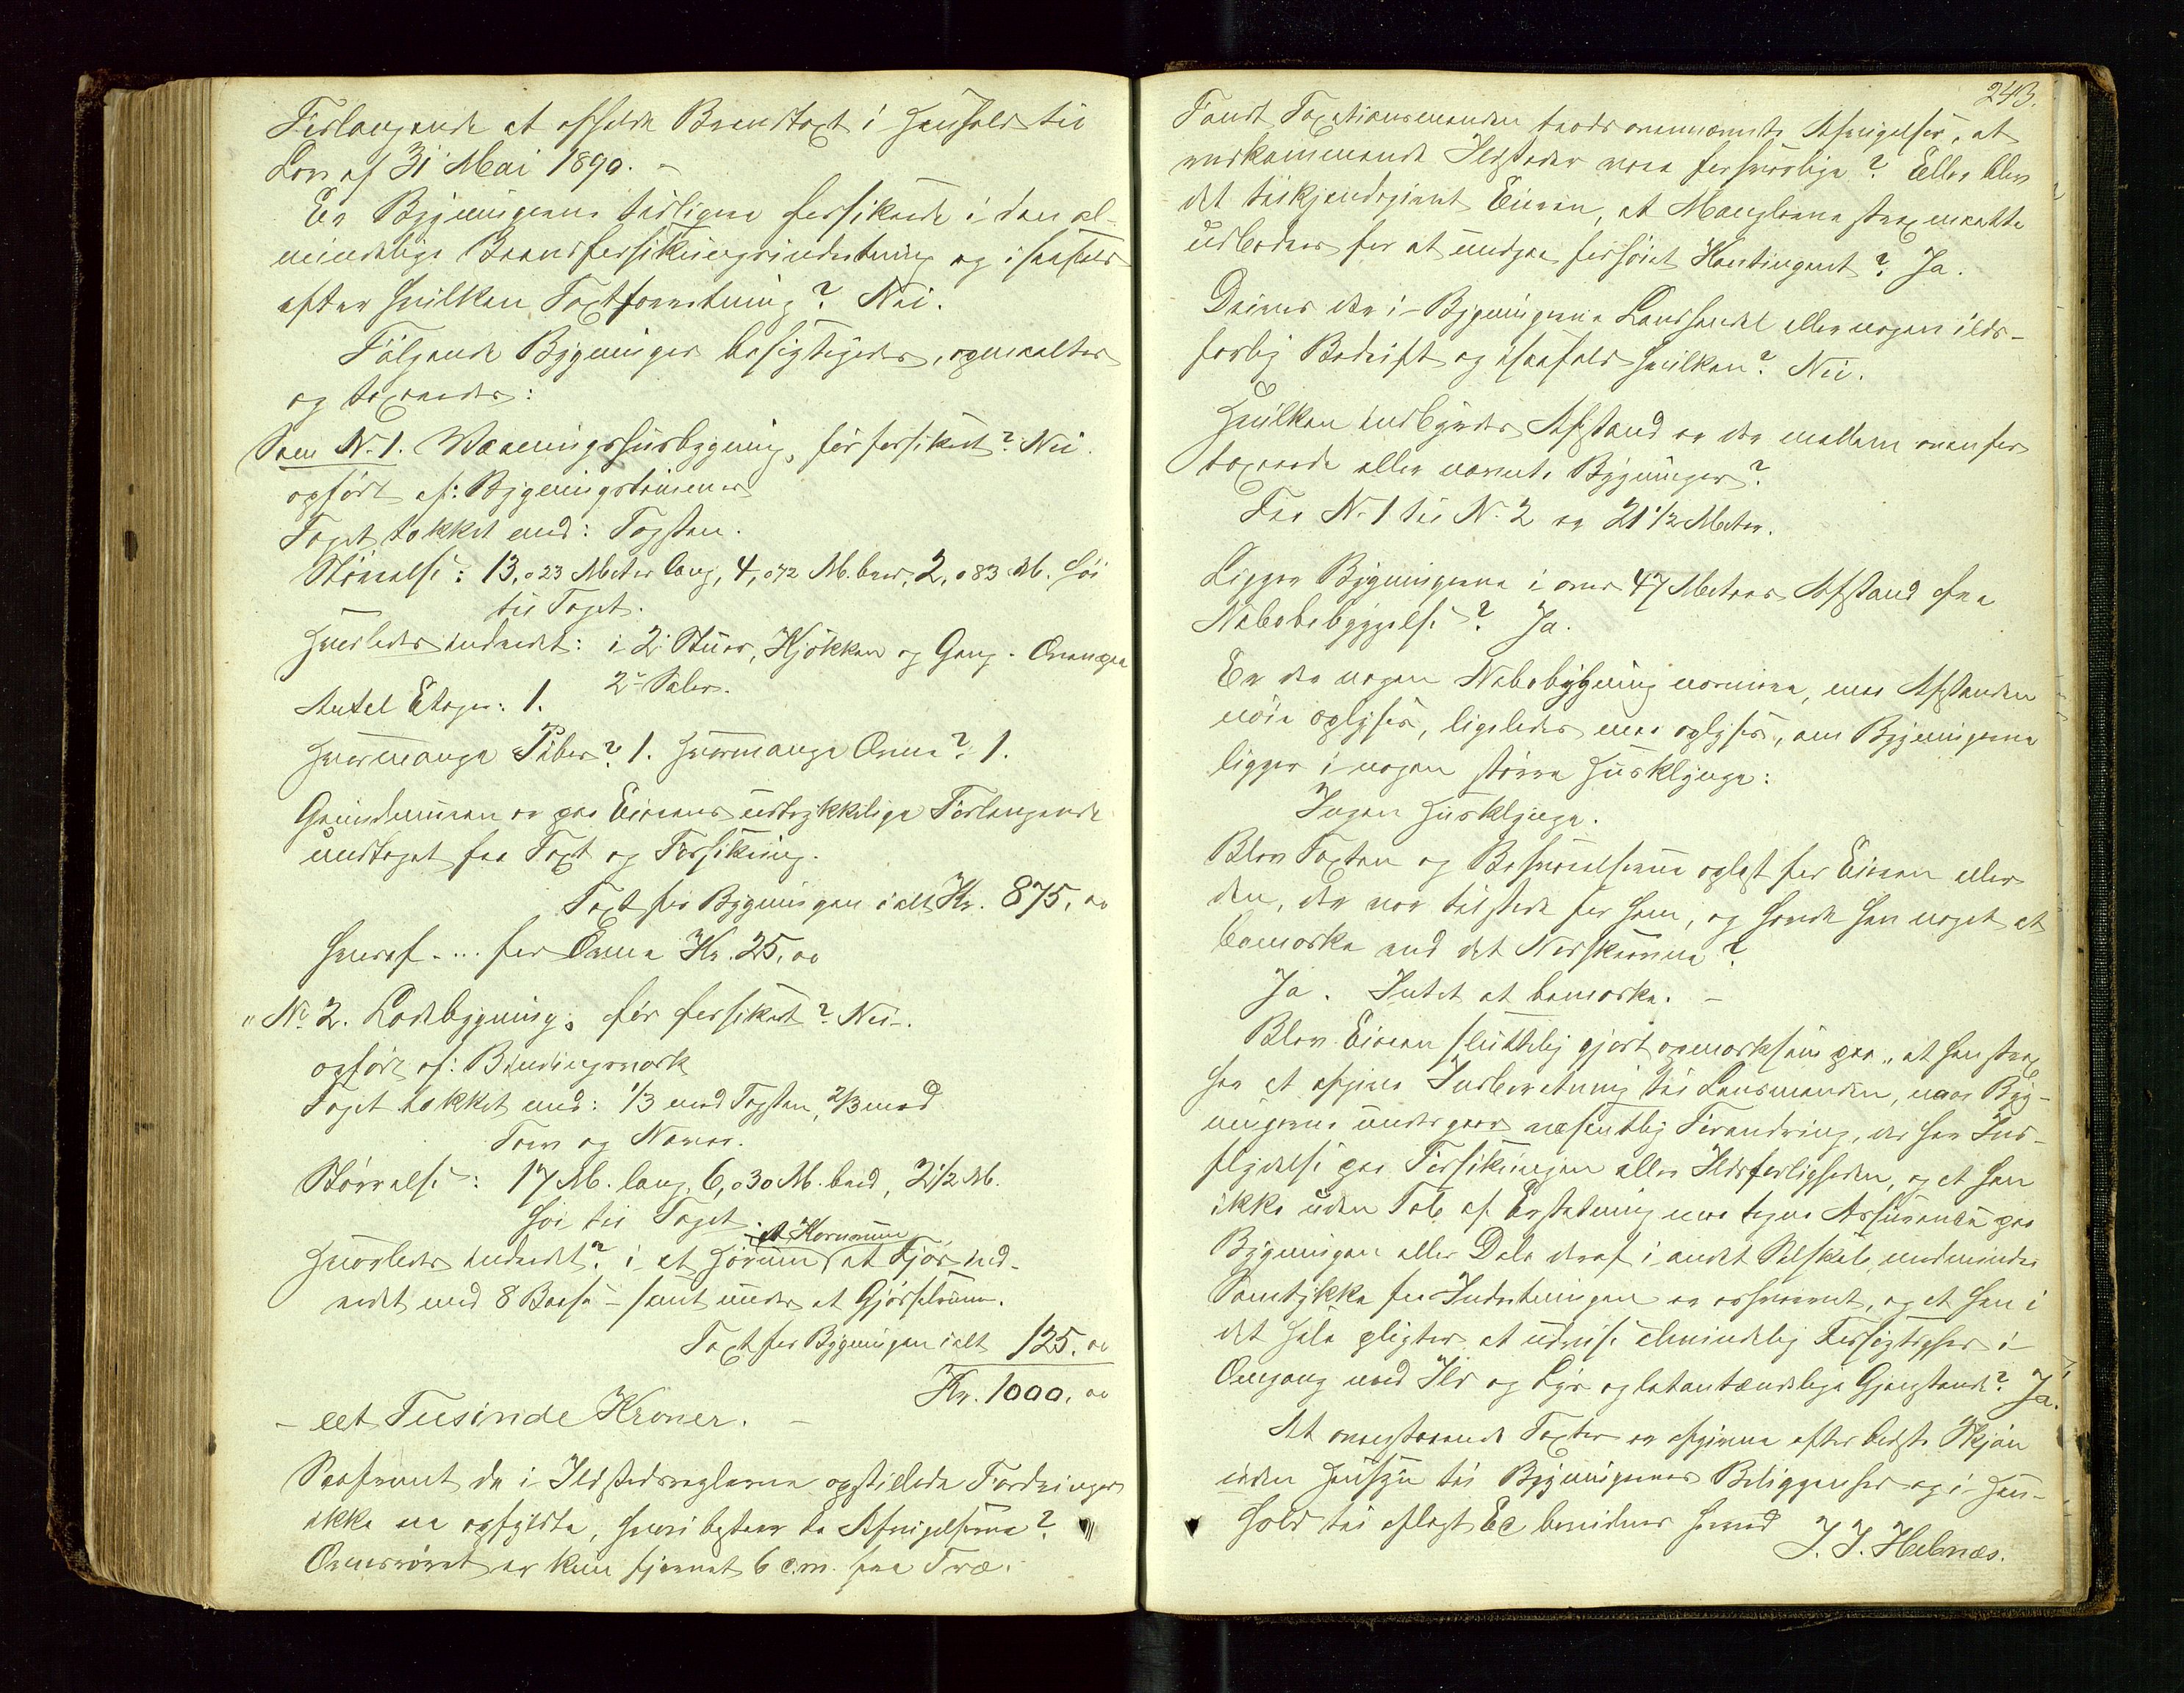 Forlangende at afholde Brandtaxt i Henhold til
Lov af 31 Mai 1890. –
Er Bygningerne tidligere forsikrede i den al-
mindelige Brandforsikringsindretning og i saafald
efter hvilken Taxtforretning? Nei.
Følgende Bygninger besigtigedes, opmaaltes
og taxeredes:
Som No 1. Vaaningshusbygning, før forsikret? Nei.
opført af: Bygningstømmer
Taget tækket med: Tagsten.
Størrelse: 13,023 Meter lang, 4,072 M. bred, 2,083 M. høi
til Taget.
Hvorledes indredet: i 2 Stuer, Kjøkken og Gang. Ovenpaa
2 Saler.
Antal Etager: 1.
Hvormange Piber? 1. Hvormange Ovne? 1.
Grundmuren er paa Eierens udtrykkelige Forlangende
undtaget fra Taxt og Forsikring.
Taxt for Bygningen ialt Kr. 875,00
hvoraf .... for Ovne Kr. 25,00
" No 2. Ladebygning, før forsikret? Nei.
opført af: Bindingsværk
Taget tækket med: 1/3 med Tagsten, 2/3 med
Torv og Næver.
Størrelse: 17 M. lang, 6,030 M. bred, 2 1/2 M.
høi til Taget.
et Kornrum
Hvorledes indredet? i et Hørum, et Fjøs ind-
redet med 8 Baase – samt under et Gjødselrum.
Taxt for Bygningen ialt 125,00
Kr. 1000,00
– eet Tusinde Kroner. –
Saafremt de i Ildstedsreglerne opstillede Fordringer
ikke ere opfyldte, hvori bestaar da Afvigelserne?
Ovnsrøret er kun fjernet 6 c.m. fra Træ.
243.
Fandt Taxationsmanden trods ovennævnte Afvigelser, at
vedkommende Ildsteder vare forsvarlige? Eller blev
det tilkjendegivet Eieren, at Manglerne strax maatte
udbedres for at undgaa forhøiet Kontingent? Ja.
Drives der i Bygningerne Landhandel eller nogen ilds-
farlig Bedrift og isaafald hvilken? Nei.
Hvilken indbyrdes Afstand er der mellem ovenfor
taxerede eller nævnte Bygninger?
Fra No 1 til No 2 er 21 1/2 Meter.
Ligger Bygningerne i over 47 Meters Afstand fra
Nabobebyggelse? Ja.
Er der nogen Nabobygning nærmere, maa Afstanden
nøie oplyses, ligeledes maa oplyses, om Bygningerne
ligger i nogen større Husklynge:
Ingen Husklynge.
Blev Taxten og Beskrivelserne oplæst for Eieren eller
den, der var tilstede for ham, og havde han noget at
bemærke ved det Nedskrevne?
Ja. Intet at bemærke. –
Blev Eieren sluttelig gjort opmærksom paa, at han strax
har at afgive Indberetning til Lensmanden, naar Byg-
ningerne undergaar væsentlig Forandring, der har Ind-
flydelse paa Forsikringen eller Ildsfarligheden, og at han
ikke uden Tab af Erstatning maa tegne Assurance paa
Bygningen eller Dele deraf i andet Selskab, medmindre
Samtykke fra Indretningen er erhvervet, og at han i
det Hele pligter at udvise almindelig Forsigtighed i
Omgang med Ild og Lys og letantændelige Gjenstande? Ja.
At ovenstaaende Taxter er afgivne efter bedste Skjøn
uden Hensyn til Bygningernes Beliggenhed og i Hen-
hold til aflagt Ed bevidnes herved
J. J. Helmæs.